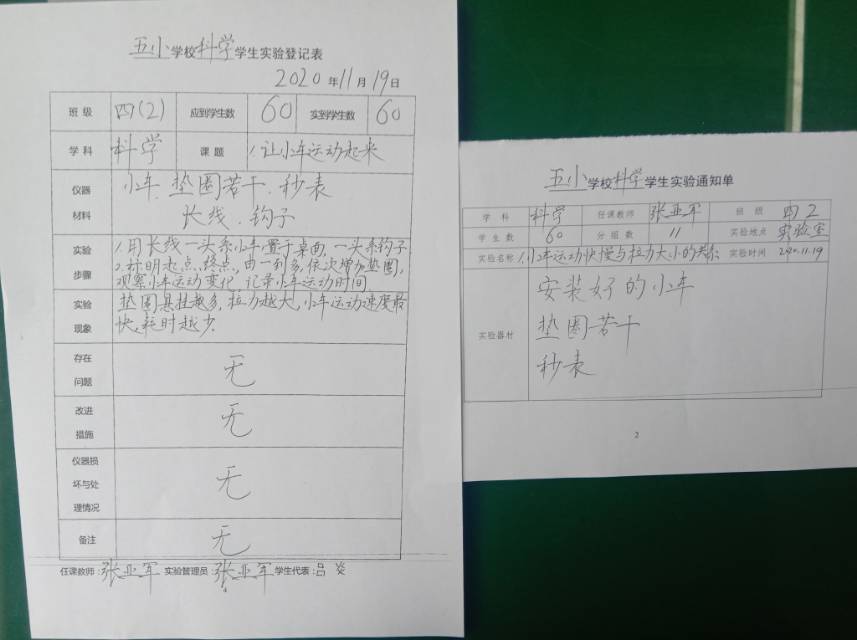 五小学校科学学生实验登记表
2020年11月19日
班级 四(2) 应到学生数 60 实到学生数 60
学科 科学 课题 1.让小车运动起来
仪器材料 小车、垫圈若干、秒表
长线、钩子
实验步骤 1.用长线一头系小车,置于桌面,一头系钩子
2.标明起点、终点,由一到多,依次增加垫圈,
观察小车运动变化,记录小车运动时间
实验现象 垫圈悬挂越多,拉力越大,小车运动速度最
快,耗时越少.
存在问题 无
改进措施 无
仪器损坏与处理情况 无
备注 无
任课教师:张亚军 实验管理员:张亚军 学生代表:吕
五小学校科学学生实验通知单
学科 科学 任课教师 张亚军 班级 四2
学生数 60 分组数 11 实验地点 实验室
实验名称 1.小车运动快慢与拉力大小的关系 实验时间 2020.11.19
实验器材 安装好的小车
垫圈若干
秒表
2